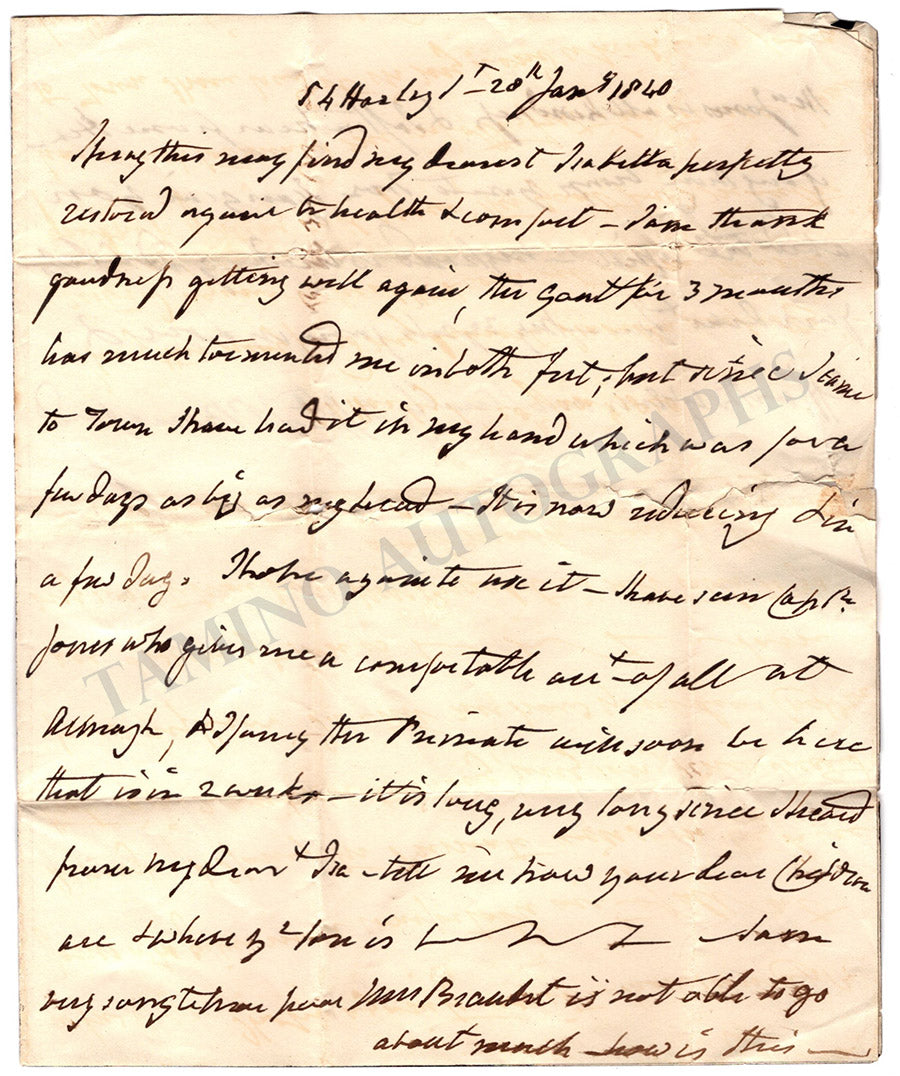 54 Harley St 28th Jany 1840
I pray this may find my dearest Isabella perfectly
restored again to health & comfort – I am thank
goodness getting well again, the Gout for 3 months
has much tormented me in both feet; but since I came
to Town I have had it in my hand which was for a
few days as big as my head – It is now reducing & in
a few days I hope again to use it – I have seen Captn
Jones who gives me a comfortable acct of all at
Armagh, & I fancy the Primate will soon be here
that is in 2 weeks – it is long, very long since I heard
from my dearst Isa – tell me how your dear Children
are & where yr Son is I am
very sorry to hear poor Mrs is not able to go
about much – how is this –
TAMINO AUTOGRAPHS